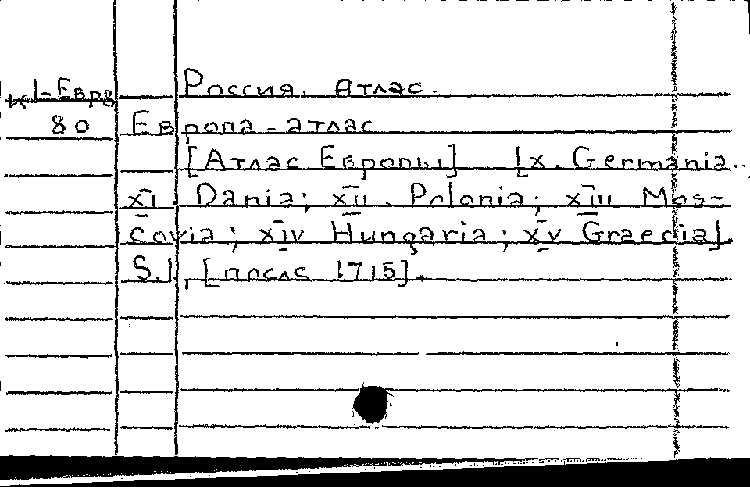 к1-Евр8 Россия. Атлас.
80 Европа - атлас
[Атлас Европы] [x. Germania..
XI. Dania; XII. Polonia; XIII Mos=
covia; XIV Hungaria; XV Graecia].
S.l., [после 1715].